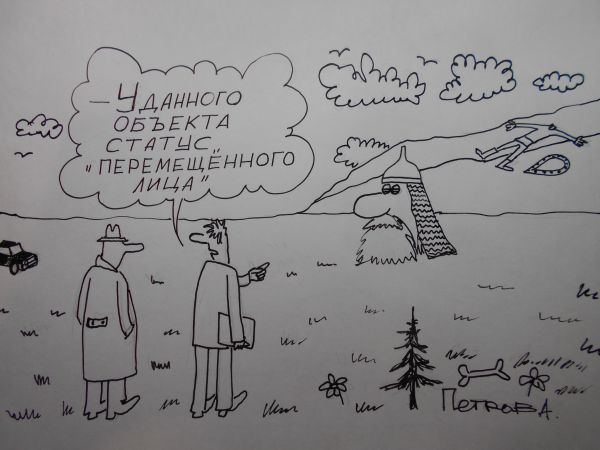 — У данного
объекта
статус
"перемещённого
лица"
Петров А.